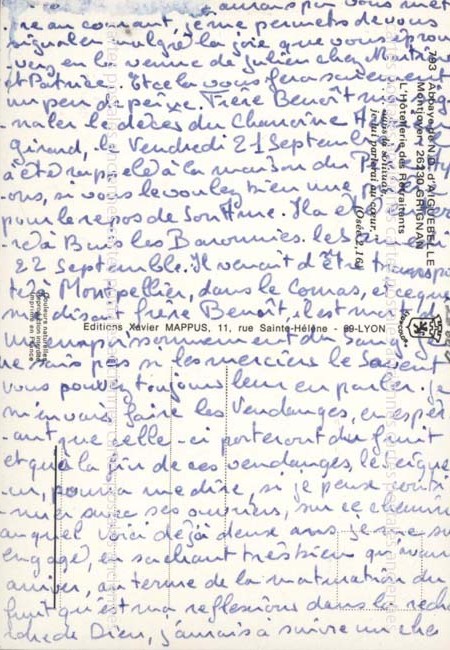 aurais pu vous met-
-tre au courant, je me permets de vous
signaler malgré la joie que vous éprou-
vez, en la venue de Julien chez M
et Patrice. Et cela vous fera sûrement
un peu de peine. Frère Benoît m
-naler le décès du Chanoine H
girand, le Vendredi 21 Septembre
a été rappelé à la maison du P
-ons, si vous le voulez bien une p
pour le repos de Son Âme. Il a é
-ré à Buis les Baronnies. le S
22 Septembre. Il venait d'être transpor
té à Montpellier, dans le Comas, et ce que
me disant frère Benoît, c'est
un empoisonnement du Sang. Je
ne sais pas si les merciers le savent
vous pouvez toujours leur en parler. Je
m'en vais faire les Vendanges, en espér
-ant que celle-ci porteront du fruit
et qu'à la fin de ces vendanges, le
-ur, pourra me dire, si je peux conti
-nuer avec ses ouvriers, sur ce chemin
auquel voici déjà deux ans je me su
engagé, en sachant très bien qu'avan
arriver, au terme de la maturation du
fruit qu'est ma réflexions dans la rech
-che de Dieu, j'aurais à suivre un che
793 Abbaye de N.-D. d'AIGUEBELLE
Montjoyer - 26230 GRIGNAN
L'Hôtellerie des Retraitants
Je lui parlerai au cœur.
(Osée 2, 16)
Editions Xavier MAPPUS, 11, rue Sainte-Hélène - 69-LYON
Couleurs naturelles
Reproduction interdite
Imprimé en France